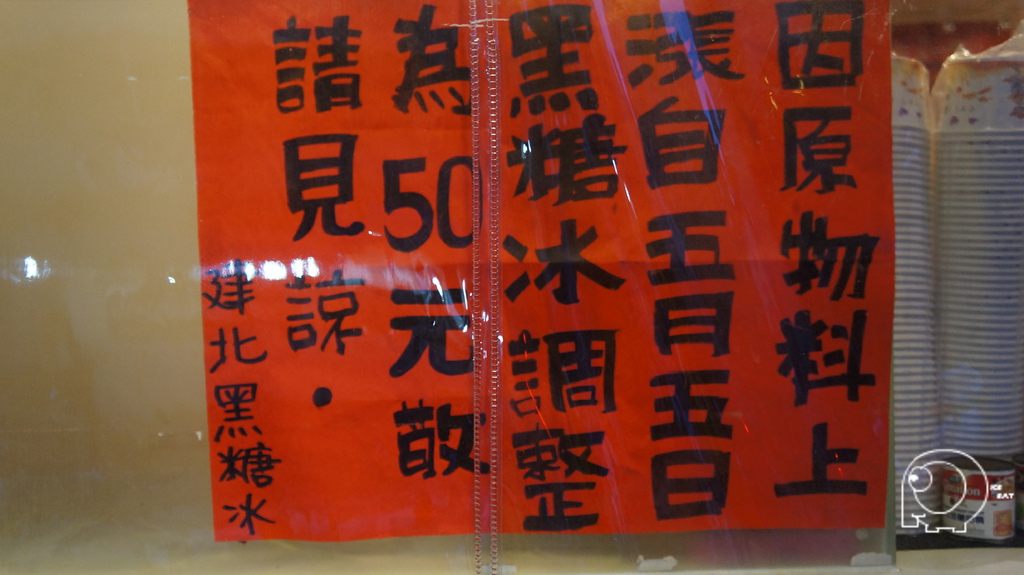 因原物料上
漲自五月五日
黑糖冰調整
為50元敬
請見諒.
建北黑糖冰
ICE
EAT